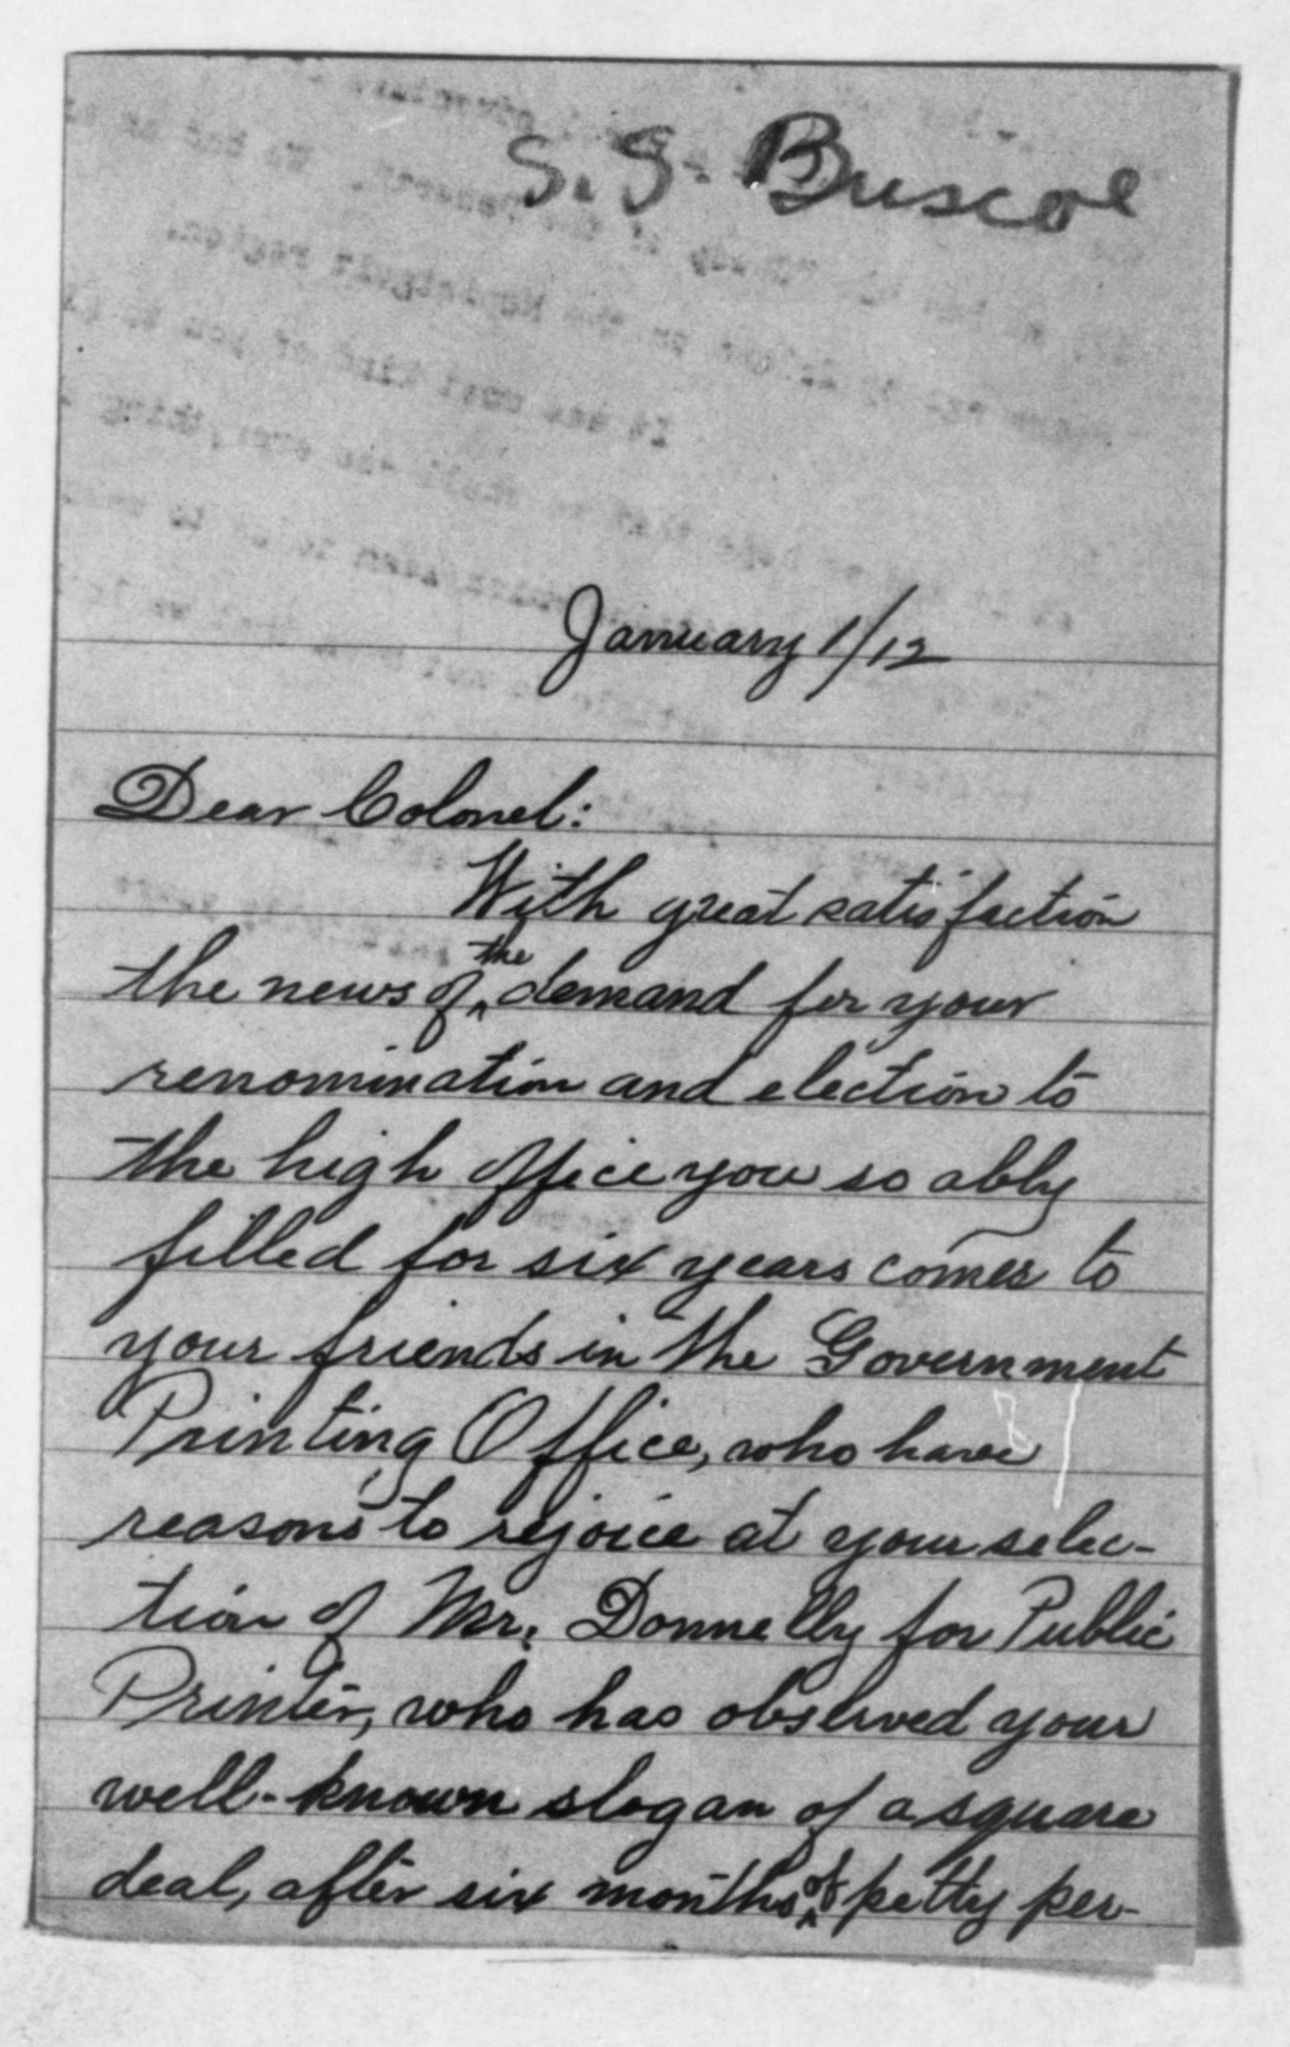 S. S. Buscoe
January 1/12
Dear Colonel:
With great satisfaction
the news of the demand for your
renomination and election to
the high office you so ably
filled for six years comes to
your friends in the Government
Printing Office, who have
reasons to rejoice at your selec-
tion of Mr. Donnelly for Public
Printer, who has observed your
well-known slogan of a square
deal, after six months of petty per-